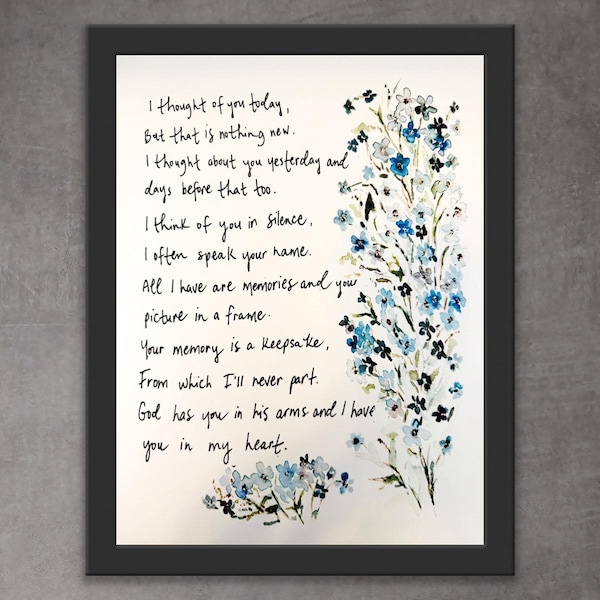 I thought of you today,
But that is nothing new.
I thought about you yesterday and
days before that too.
I think of you in silence,
I often speak your name.
All I have are memories and your
picture in a frame.
Your memory is a keepsake,
From which I'll never part.
God has you in his arms and I have
you in my heart.